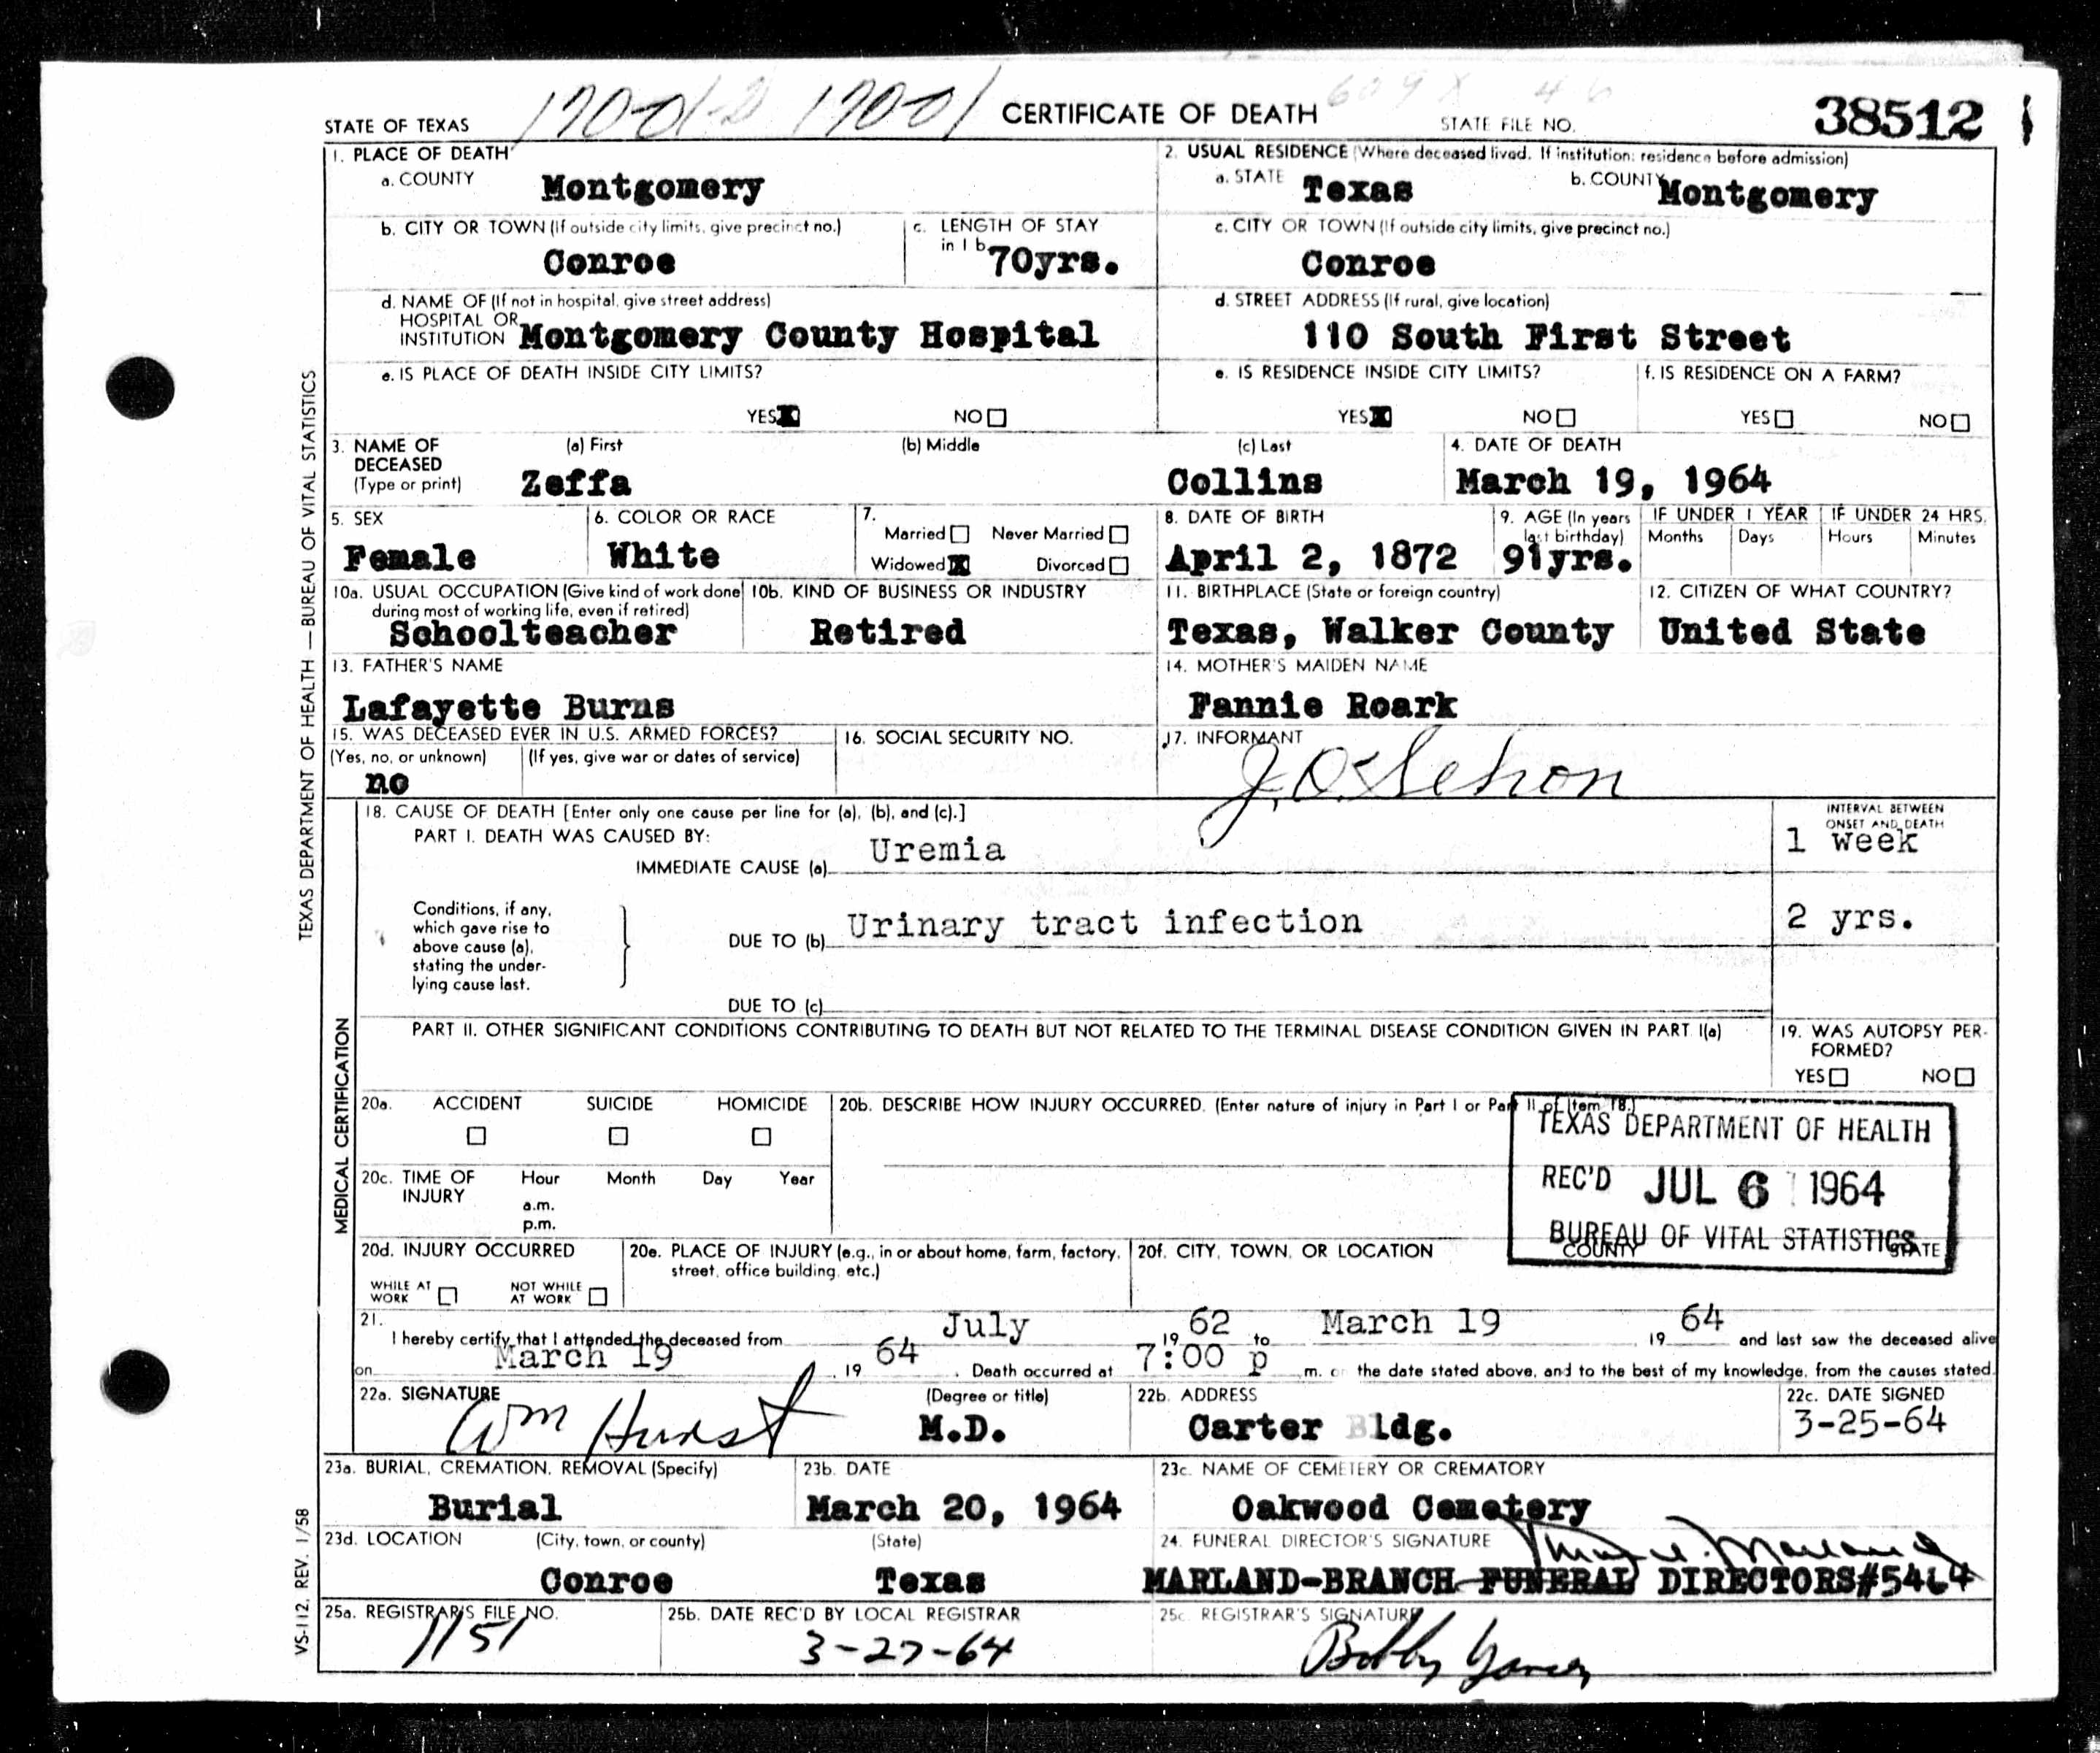 STATE OF TEXAS
CERTIFICATE OF DEATH
STATE FILE NO.
38512
1. PLACE OF DEATH
a. COUNTY Montgomery
2. USUAL RESIDENCE (Where deceased lived. If institution: residence before admission)
a. STATE Texas b. COUNTY Montgomery
b. CITY OR TOWN (If outside city limits, give precinct no.)
Conroe
c. LENGTH OF STAY in 1 b 70yrs.
c. CITY OR TOWN (If outside city limits, give precinct no.)
Conroe
d. NAME OF (If not in hospital, give street address)
HOSPITAL OR
INSTITUTION Montgomery County Hospital
d. STREET ADDRESS (If rural, give location)
110 South First Street
e. IS PLACE OF DEATH INSIDE CITY LIMITS?
YES NO
e. IS RESIDENCE INSIDE CITY LIMITS?
YES NO
f. IS RESIDENCE ON A FARM?
YES NO
3. NAME OF DECEASED (Type or print)
(a) First (b) Middle (c) Last
Zeffa Collins
4. DATE OF DEATH
March 19, 1964
5. SEX
Female
6. COLOR OR RACE
White
7.
Married Never Married
Widowed X Divorced
8. DATE OF BIRTH
April 2, 1872
9. AGE (In years last birthday)
91yrs.
IF UNDER 1 YEAR
Months Days
IF UNDER 24 HRS.
Hours Minutes
10a. USUAL OCCUPATION (Give kind of work done during most of working life, even if retired)
Schoolteacher
10b. KIND OF BUSINESS OR INDUSTRY
Retired
11. BIRTHPLACE (State or foreign country)
Texas, Walker County
12. CITIZEN OF WHAT COUNTRY?
United State
13. FATHER'S NAME
Lafayette Burns
14. MOTHER'S MAIDEN NAME
Fannie Roark
15. WAS DECEASED EVER IN U.S. ARMED FORCES?
(Yes, no, or unknown) (If yes, give war or dates of service)
no
16. SOCIAL SECURITY NO.
17. INFORMANT
J.O. Sehon
18. CAUSE OF DEATH [Enter only one cause per line for (a), (b), and (c).]
PART I. DEATH WAS CAUSED BY:
IMMEDIATE CAUSE (a) Uremia
INTERVAL BETWEEN ONSET AND DEATH
1 week
Conditions, if any,
which gave rise to
above cause (a),
stating the under-
lying cause last.
DUE TO (b) Urinary tract infection
2 yrs.
DUE TO (c)
PART II. OTHER SIGNIFICANT CONDITIONS CONTRIBUTING TO DEATH BUT NOT RELATED TO THE TERMINAL DISEASE CONDITION GIVEN IN PART I(a)
19. WAS AUTOPSY PER-
FORMED?
YES NO
20a. ACCIDENT SUICIDE HOMICIDE
20b. DESCRIBE HOW INJURY OCCURRED. (Enter nature of injury in Part I or Part II of Item 18.)
TEXAS DEPARTMENT OF HEALTH
REC'D JUL 6 1964
BUREAU OF VITAL STATISTICS
20c. TIME OF INJURY
Hour Month Day Year
a.m.
p.m.
20d. INJURY OCCURRED
WHILE AT WORK NOT WHILE AT WORK
20e. PLACE OF INJURY (e.g., in or about home, farm, factory, street, office building, etc.)
20f. CITY, TOWN, OR LOCATION COUNTY STATE
21.
I hereby certify that I attended the deceased from July 19 62 to March 19 19 64 and last saw the deceased alive
on March 19 19 64. Death occurred at 7:00 p m. on the date stated above, and to the best of my knowledge, from the causes stated.
22a. SIGNATURE
Wm Hurst
(Degree or title)
M.D.
22b. ADDRESS
Carter Bldg.
22c. DATE SIGNED
3-25-64
23a. BURIAL, CREMATION, REMOVAL (Specify)
Burial
23b. DATE
March 20, 1964
23c. NAME OF CEMETERY OR CREMATORY
Oakwood Cemetery
23d. LOCATION (City, town, or county) (State)
Conroe Texas
24. FUNERAL DIRECTOR'S SIGNATURE
MARLAND-BRANCH FUNERAL DIRECTORS#5464
25a. REGISTRAR'S FILE NO.
1151
25b. DATE REC'D BY LOCAL REGISTRAR
3-27-64
25c. REGISTRAR'S SIGNATURE
Bobby Yancey
TEXAS DEPARTMENT OF HEALTH — BUREAU OF VITAL STATISTICS
MEDICAL CERTIFICATION
VS-112, REV. 1/58